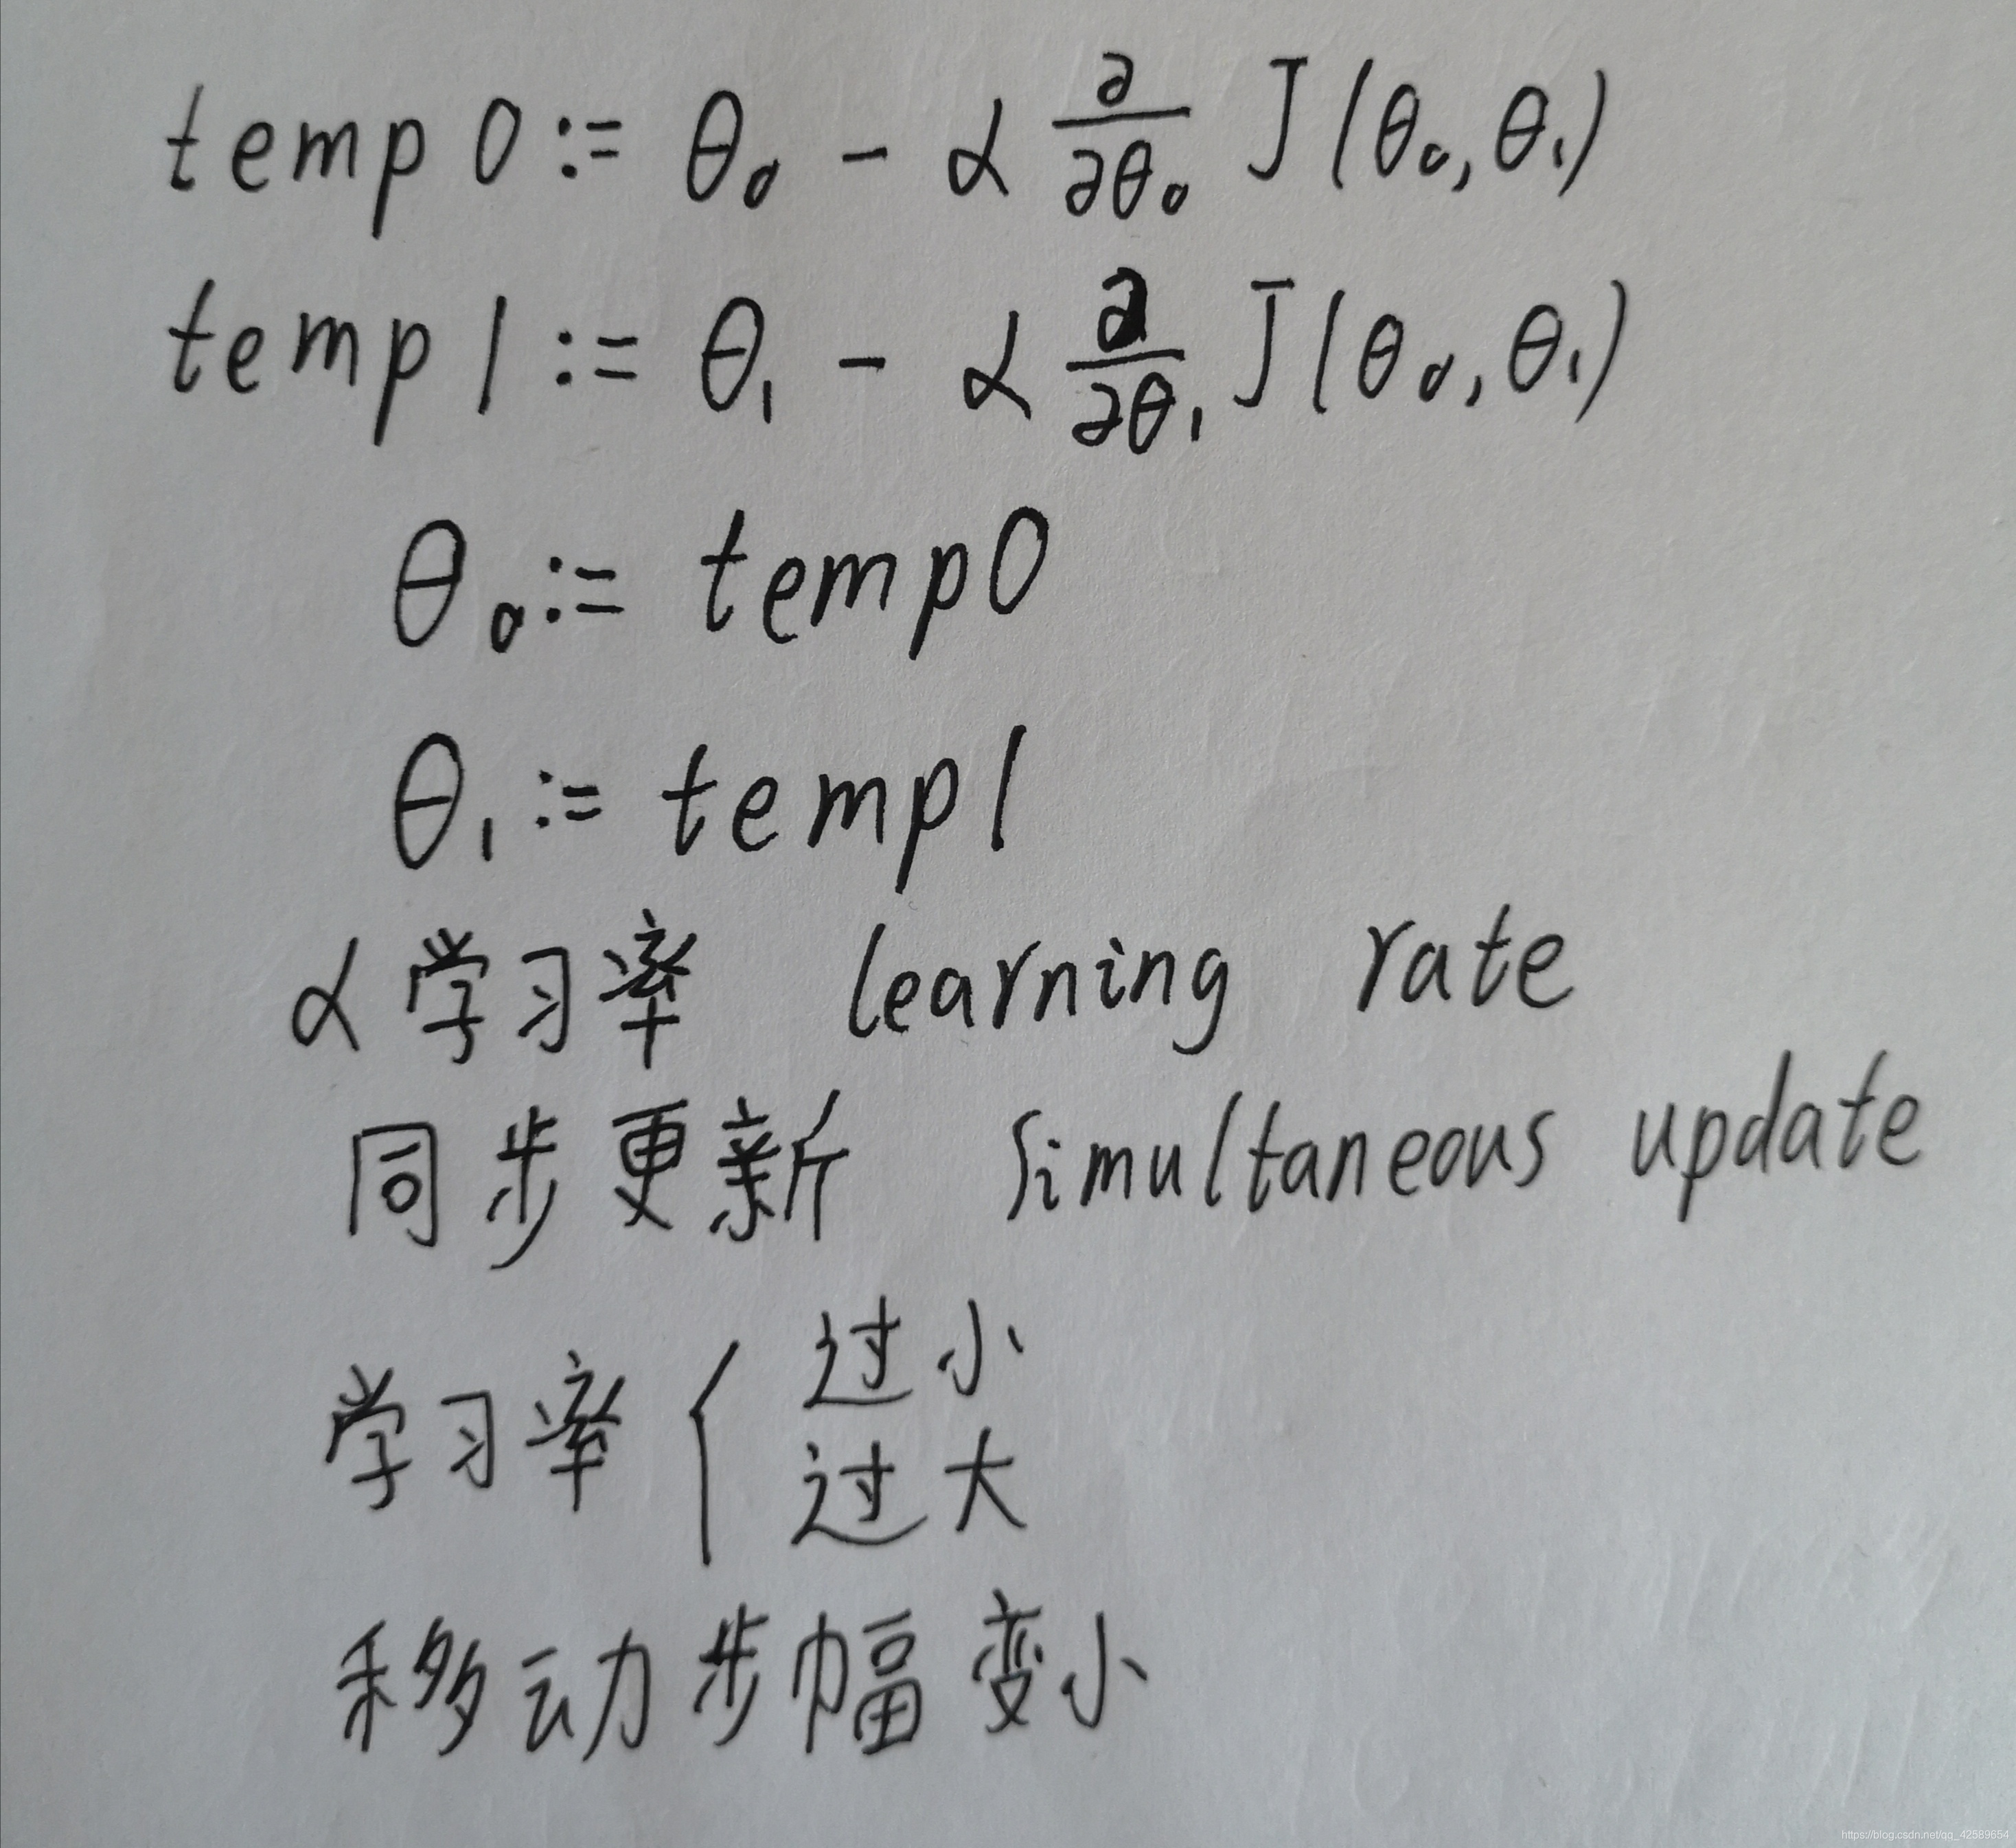 temp0 := θ₀ - α ∂/∂θ₀ J(θ₀,θ₁)
temp1 := θ₁ - α ∂/∂θ₁ J(θ₀,θ₁)
θ₀ := temp0
θ₁ := temp1
α 学习率 learning rate
同步更新 simultaneous update
学习率 { 过小
过大
移动步幅变小
https://blog.csdn.net/qq_42589654